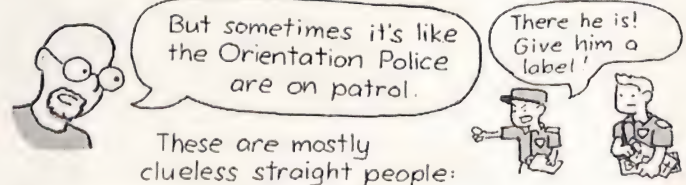 But sometimes it's like
the Orientation Police
are on patrol.
There he is!
Give him a
label!
These are mostly
clueless straight people: